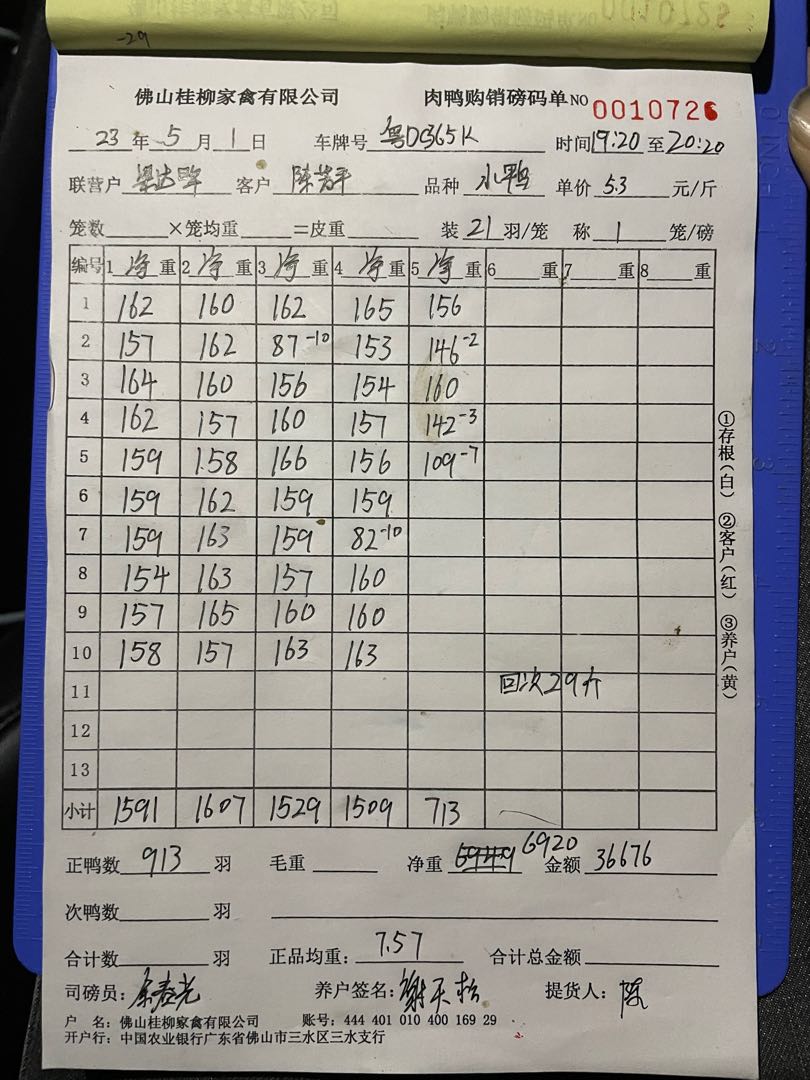 -29
佛山桂柳家禽有限公司 肉鸭购销磅码单 NO 0010726
23 年 5 月 1 日 车牌号 粤DG365K 时间 19:20 至 20:20
联营户 客户 陈芳平 品种 水鸭 单价 5.3 元/斤
笼数 ×笼均重 =皮重 装 21 羽/笼 称 1 笼/磅
编号 1 净 重 2 净 重 3 净 重 4 净 重 5 净 重 6 重 7 重 8 重
1 162 160 162 165 156
2 157 162 87-10 153 146-2
3 164 160 156 154 160
4 162 157 160 157 142-3
5 159 158 166 156 109-7
6 159 162 159 159
7 159 163 159 82-10
8 154 163 157 160
9 157 165 160 160
10 158 157 163 163
11 回次29斤
12
13
小计 1591 1607 1529 1509 713
正鸭数 913 羽 毛重 净重 6949 6920 金额 36676
次鸭数 羽
合计数 羽 正品均重: 7.57 合计总金额
司磅员: 养户签名: 谢天松 提货人: 陈
户 名: 佛山桂柳家禽有限公司 账号: 444 401 010 400 169 29
开户行: 中国农业银行广东省佛山市三水区三水支行
①存根(白) ②客户(红) ③养户(黄)